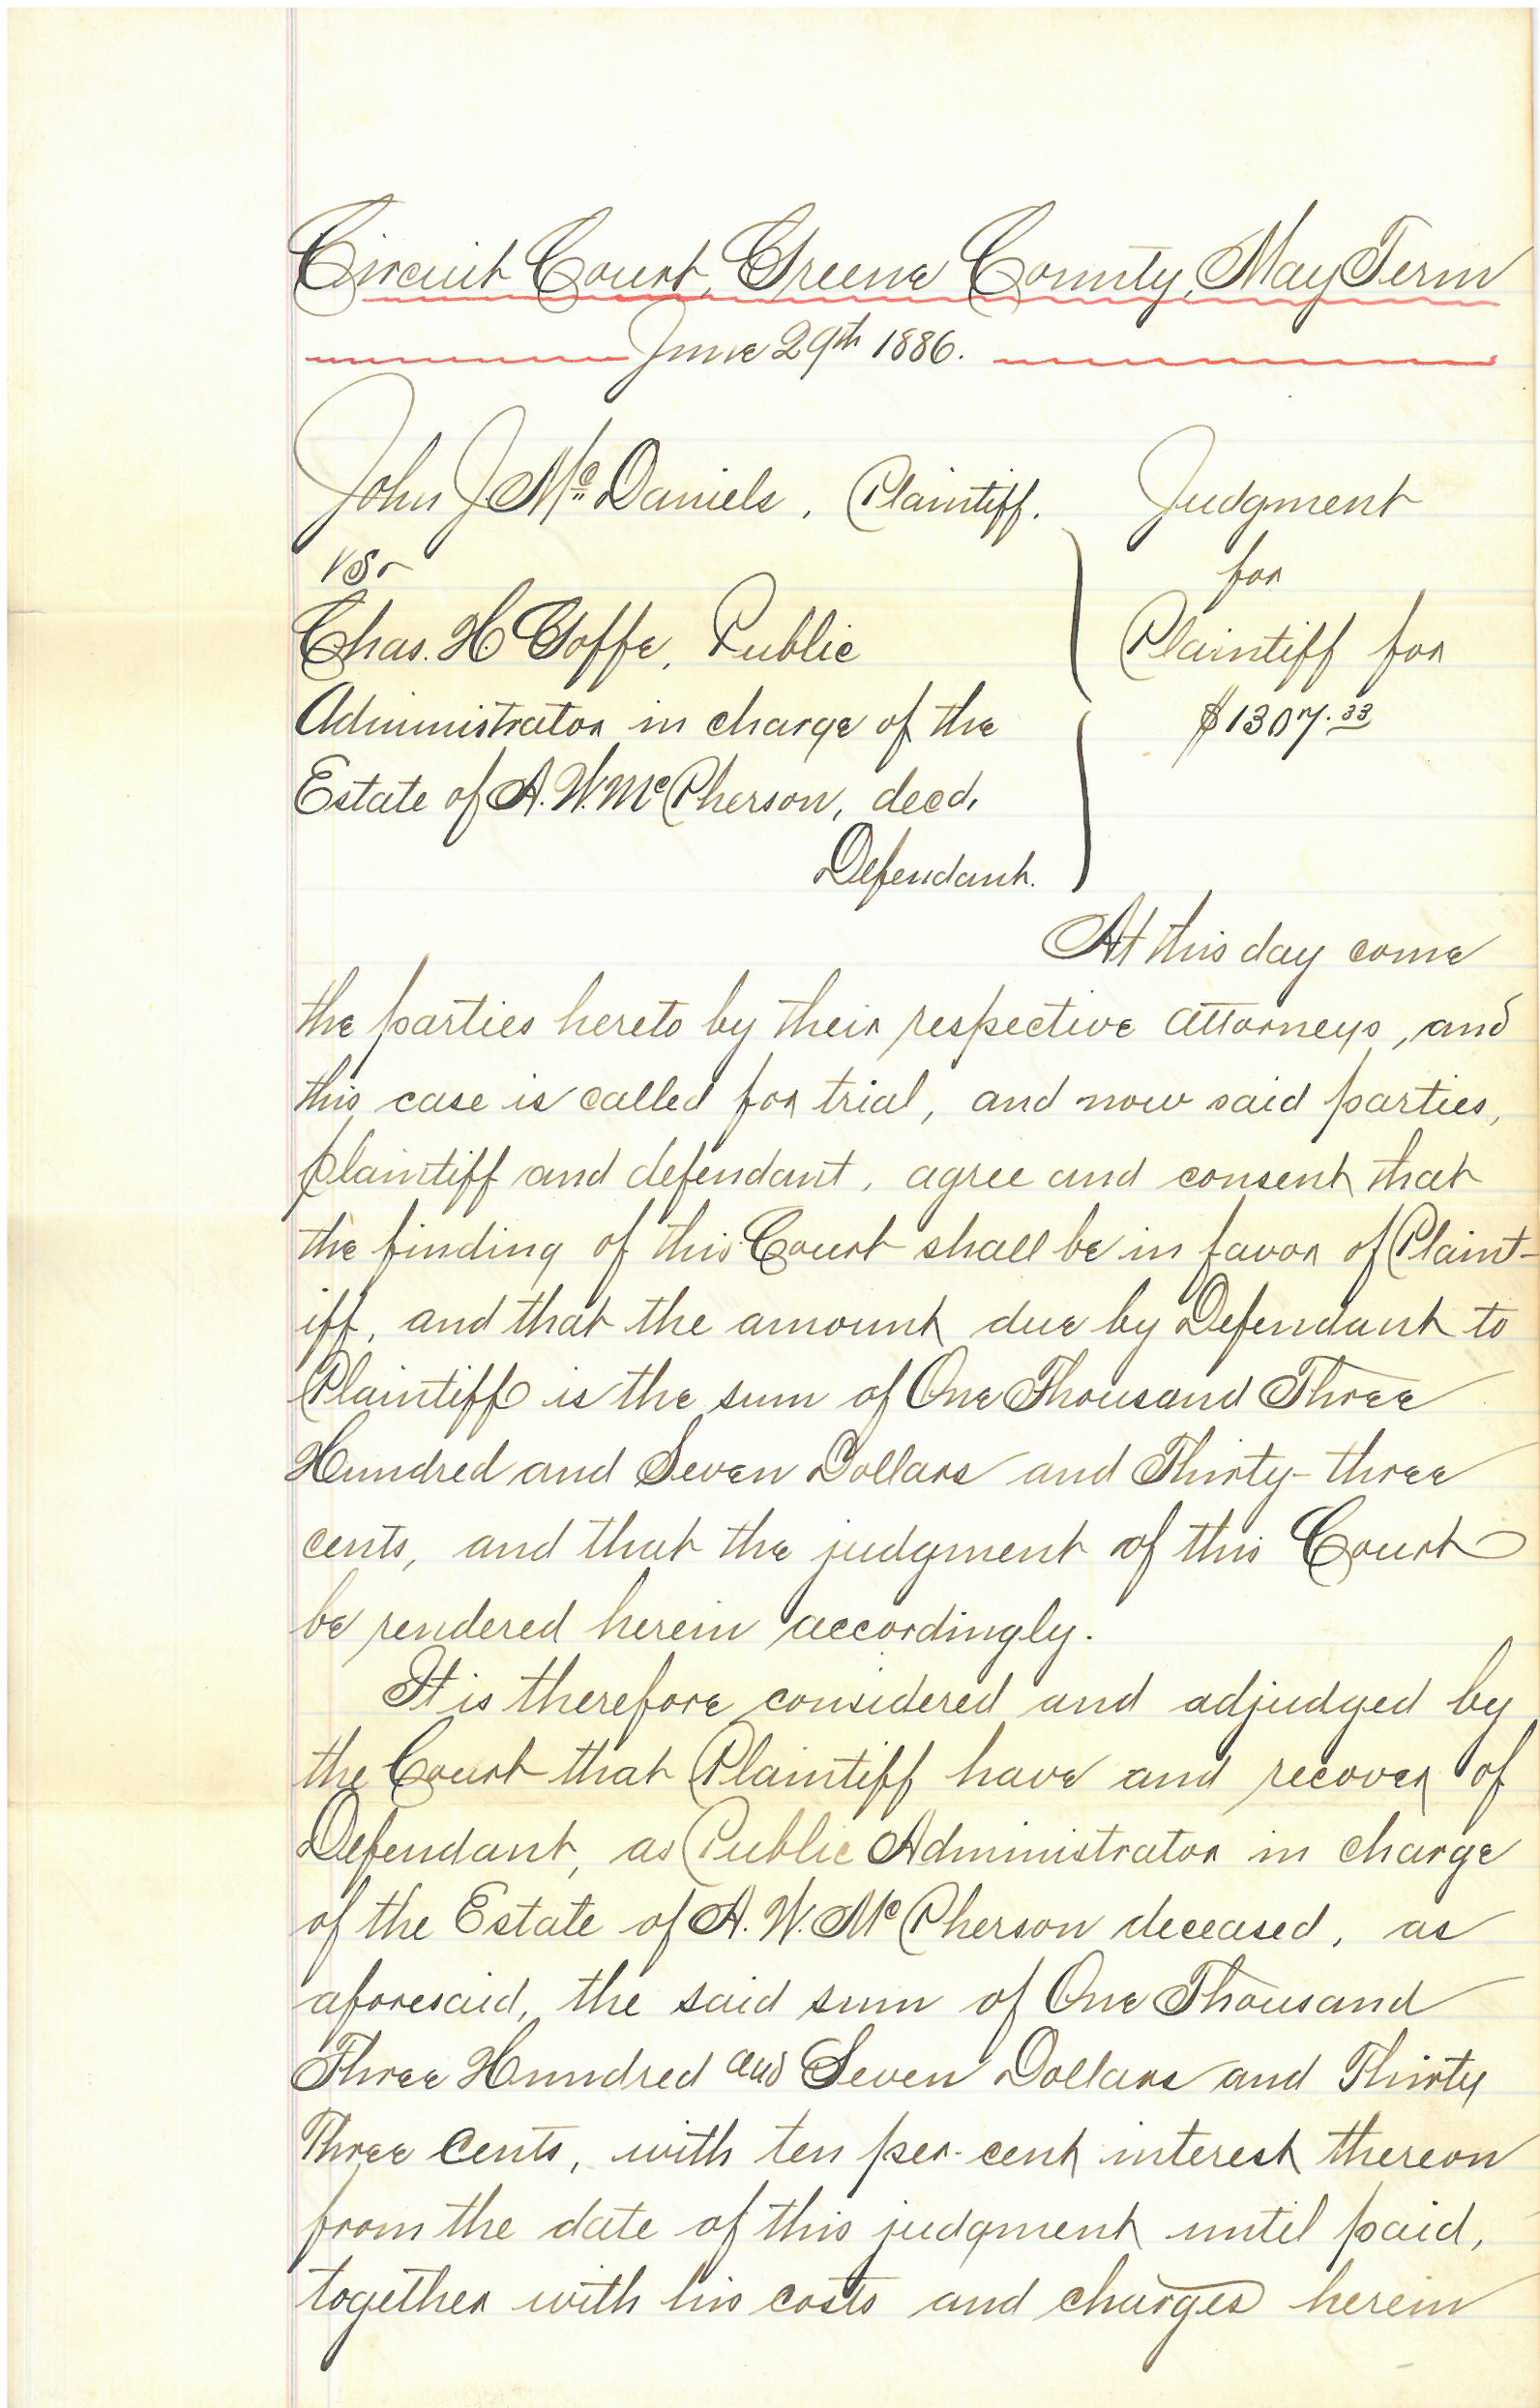 Circuit Court, Greene County, May Term
June 29th 1886.
John J McDaniels, Plaintiff. Judgment
vs. for
Chas. H Goffe, Public Plaintiff for
Administrator in charge of the $1307.33
Estate of A. W. McPherson, decd,
Defendant.
At this day come
the parties hereto by their respective attorneys, and
this case is called for trial, and now said parties,
plaintiff and defendant, agree and consent that
the finding of this Court shall be in favor of Plaint-
iff, and that the amount due by Defendant to
Plaintiff is the sum of One Thousand Three
Hundred and Seven Dollars and Thirty-three
cents, and that the judgment of this Court
be rendered herein accordingly.
It is therefore considered and adjudged by
the Court that Plaintiff have and recover of
Defendant, as Public Administrator in charge
of the Estate of A. W. McPherson deceased, as
aforesaid, the said sum of One Thousand
Three Hundred and Seven Dollars and Thirty
Three Cents, with ten per-cent interest thereon
from the date of this judgment until paid,
together with his costs and charges herein